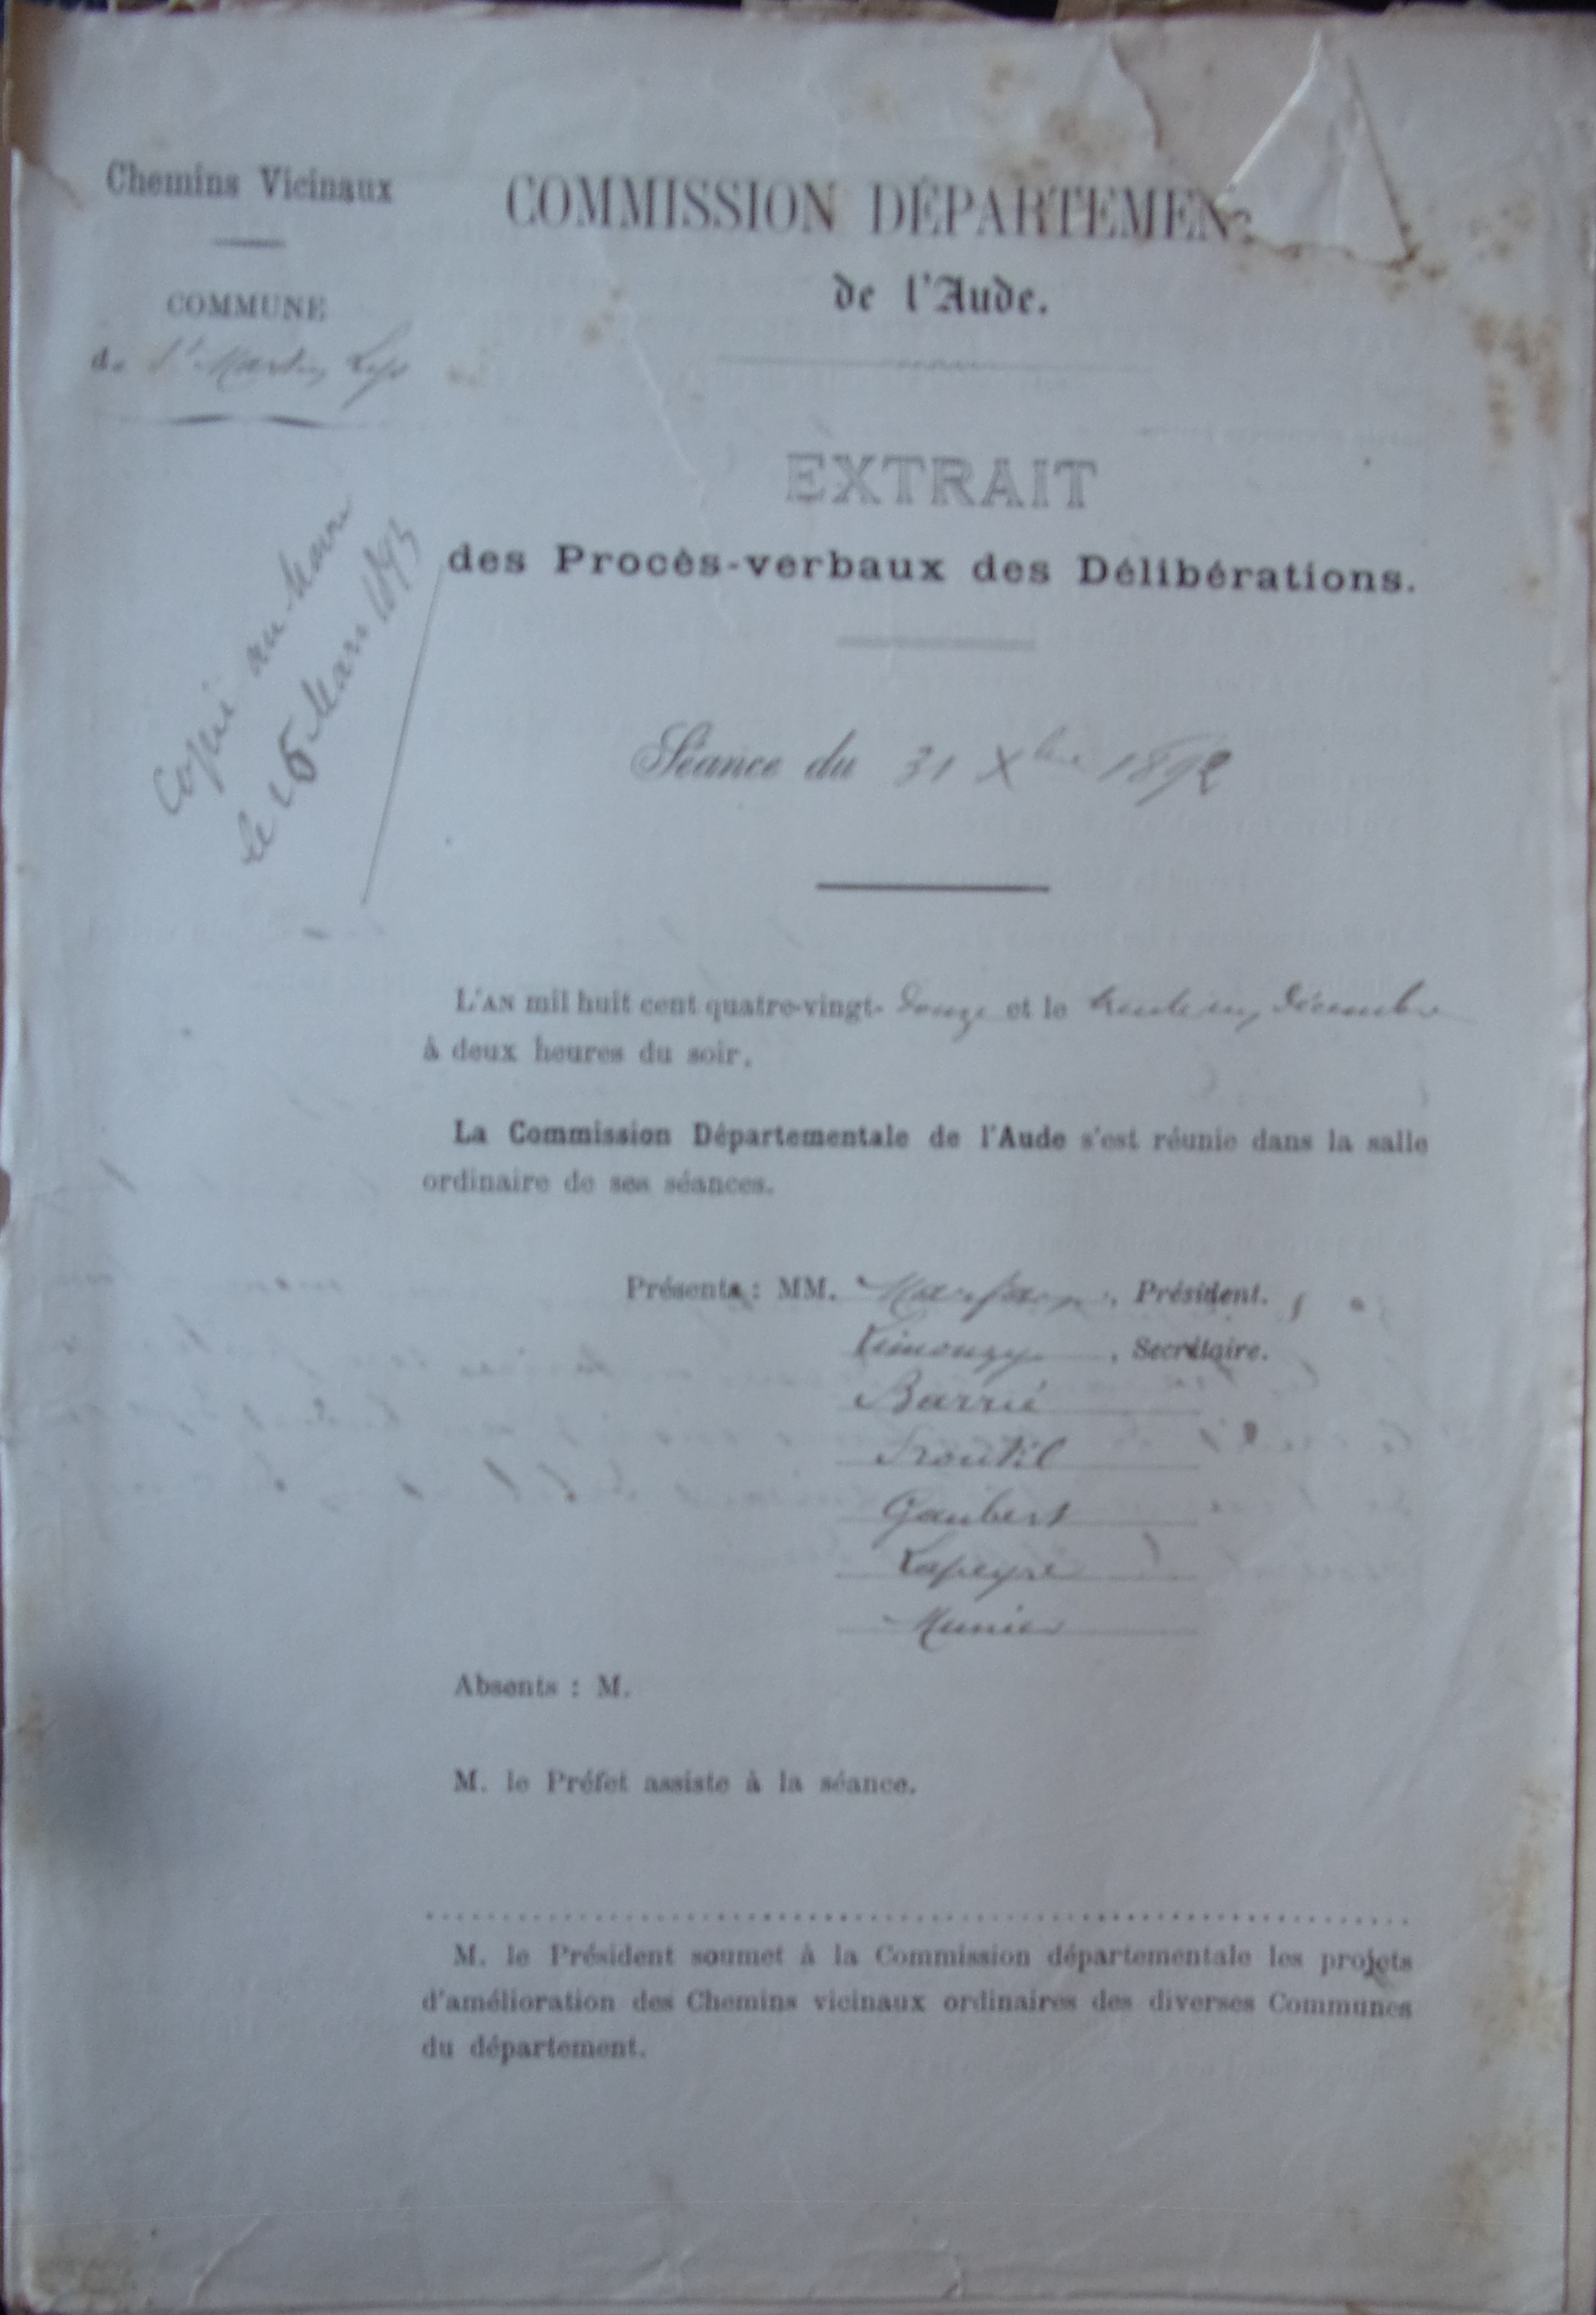 Chemins Vicinaux
COMMUNE
de St Martin Lys
COMMISSION DÉPARTEMEN
de l'Aude.
EXTRAIT
des Procès-verbaux des Délibérations.
Copie au Maire
le 15 Mars 1893
Séance du 31 Xbre 1892
L'AN mil huit cent quatre-vingt-douze et le trente un Décembre
à deux heures du soir.
La Commission Départementale de l'Aude s'est réunie dans la salle
ordinaire de ses séances.
Présents : MM. Marfan, Président.
Limouzy, Secrétaire.
Barrié
Froutil
Gaubert
Lapeyre
Munier
Absents : M.
M. le Préfet assiste à la séance.
M. le Président soumet à la Commission départementale les projets
d'amélioration des Chemins vicinaux ordinaires des diverses Communes
du département.